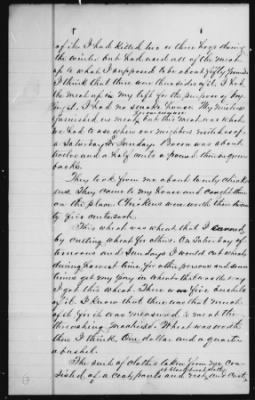 of it. I had killed two or three hogs during
the winter but had used all of the meat
up to what I supposed to be about fifty pounds
I think that there was three sides of it. I had
the meat up in my loft for the purpose of dry
ing it. I had no smoke house. My mistress
furnished us meat but this meat was what
we had to use when our neighbors visited us of
a Saturday & Sunday. Bacon was about
twelve and a half cents a pound then in green
backs.
They took from me about twenty chickens
They came to my house and caught them
on the place Chickens was worth then twen
ty five cents each.
This wheat was wheat that I earned
by cutting wheat for others. On Saturday af
ternoons and Sundays I would cut wheat
during harvest time for other persons and some
times get my pay in wheat that was the way
I got this wheat. There was five bushels
of it. I know that there was that much
of it for it was measured to me at the
threshing machine. Wheat was worth
then I think One dollar and a quarter
a bushel.
The suit of clothes taken from me con
sisted of a coat, pants and vest, and Coat